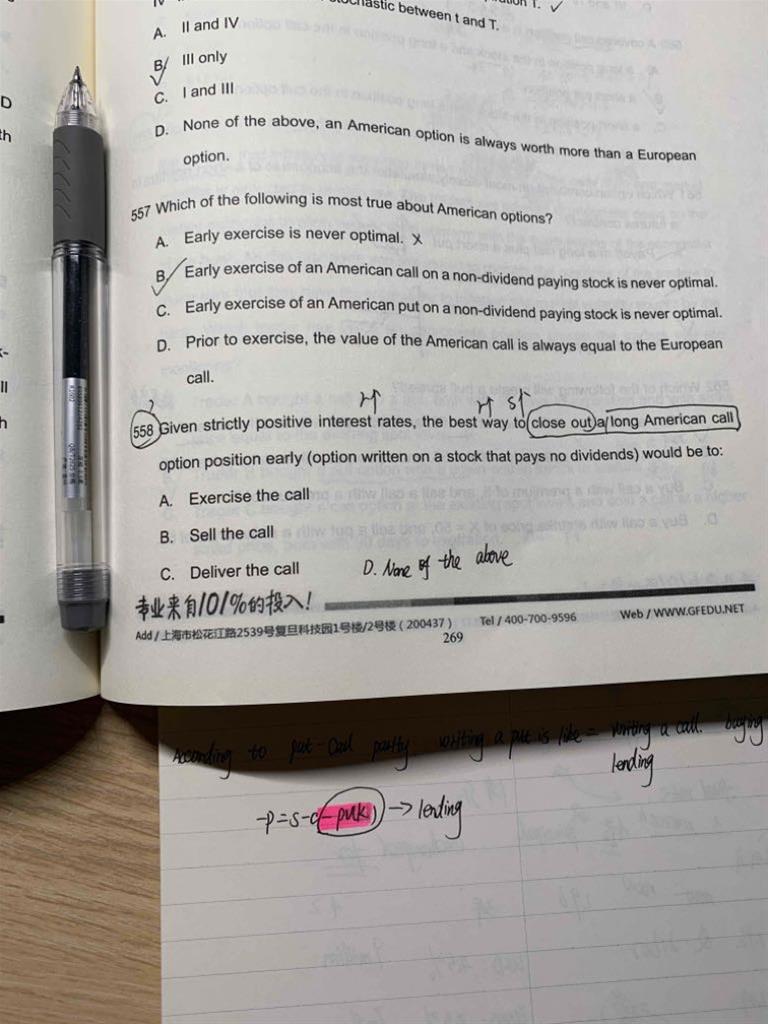 stochastic between t and T.
A. II and IV
B. III only
C. I and III
D. None of the above, an American option is always worth more than a European
option.
557 Which of the following is most true about American options?
A. Early exercise is never optimal. X
B. Early exercise of an American call on a non-dividend paying stock is never optimal.
C. Early exercise of an American put on a non-dividend paying stock is never optimal.
D. Prior to exercise, the value of the American call is always equal to the European
call.
r↑ r↑ S↑
558 Given strictly positive interest rates, the best way to close out a long American call
option position early (option written on a stock that pays no dividends) would be to:
A. Exercise the call
B. Sell the call
C. Deliver the call D. None of the above
专业来自101%的投入!
Add / 上海市松花江路2539号复旦科技园1号楼/2号楼 ( 200437 ) Tel / 400-700-9596 Web / WWW.GFEDU.NET
269
According to put-call parity writing a put is like = writing a call. buying
lending
-p=s-c → lending